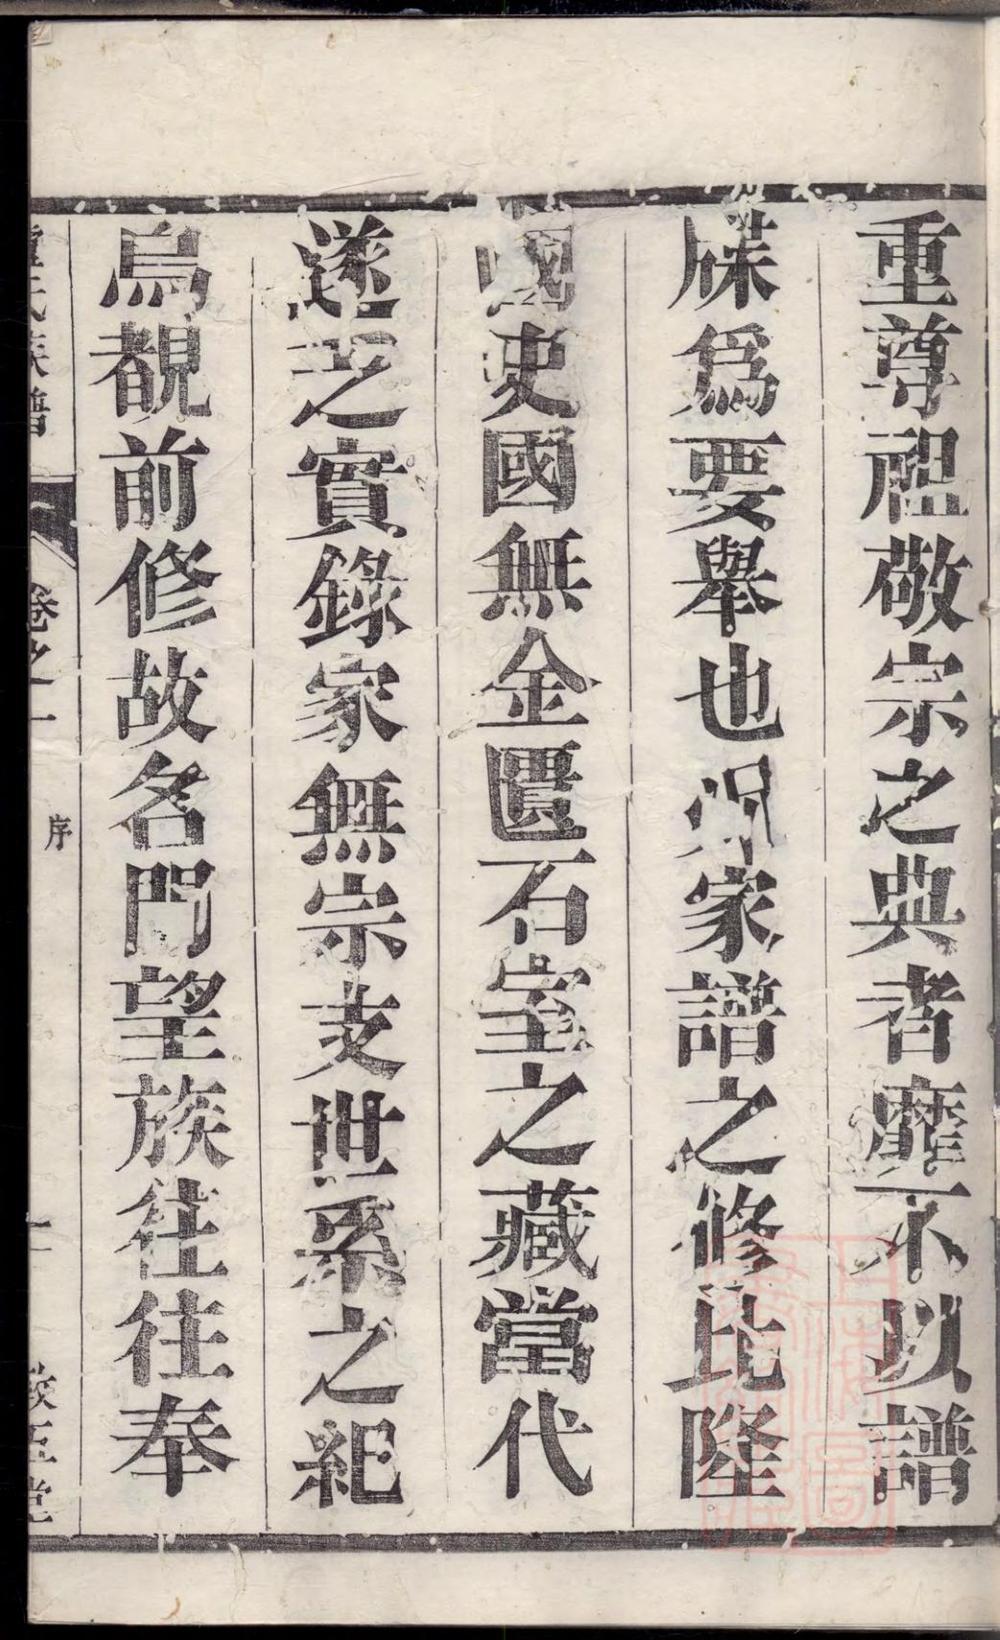 重尊祖敬宗之典者靡不以譜
牒爲要舉也況家譜之修比隆
國史國無金匱石室之藏當代
遂之實錄家無宗支世系之紀
烏覩前修故名門望族往往奉
氏族譜
卷之一
序
二
敦五堂